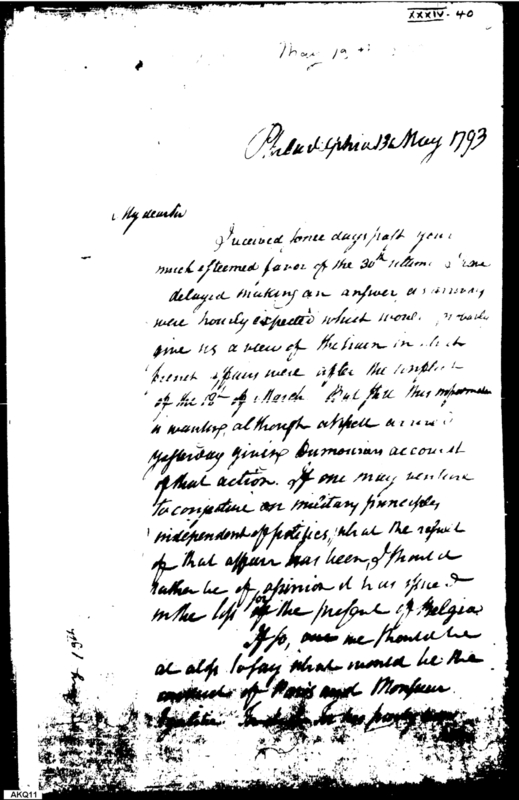 XXXIV-40
May 19th
Philadelphia May 1793
My dear sir
I received some days past your
much esteemed favor of the 30th ultimo I have
delayed making an answer as
were hourly expected which would
give us a view of the train in which
french affairs were after the conflict
of the 18th of March. But still this information
is wanting, although a vessel arrived
yesterday giving Dumouriers account
of that action. If one may venture
to conjecture on military principles
independent of politics, what the result
of that affair has been, I should
rather be of opinion it has issued
in the loss of the present of Belgia
If so, one should be
at a loss to say what would be the
of Paris and Monsieur
Egalité. in this
May 19th
AKQ11